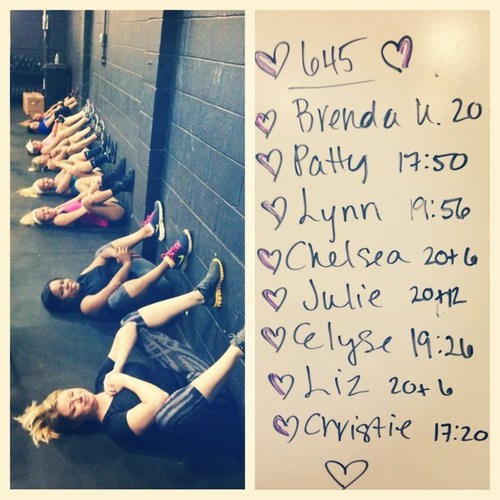 645
Brenda K. 20
Patty 17:50
Lynn 19:56
Chelsea 20+6
Julie 20+12
Celyse 19:26
Liz 20+6
Christie 17:20